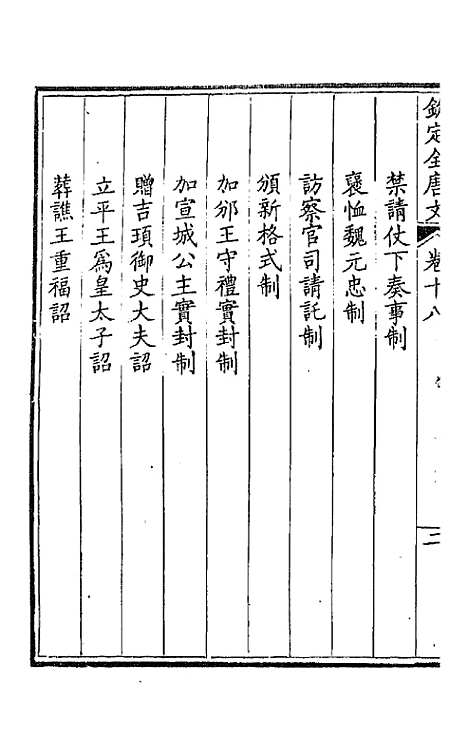 欽定全唐文 卷十八 二
禁請仗下奏事制
褒恤魏元忠制
訪察官司請託制
頒新格式制
加邠王守禮實封制
加宣城公主實封制
贈吉頊御史大夫詔
立平王爲皇太子詔
葬譙王重福詔